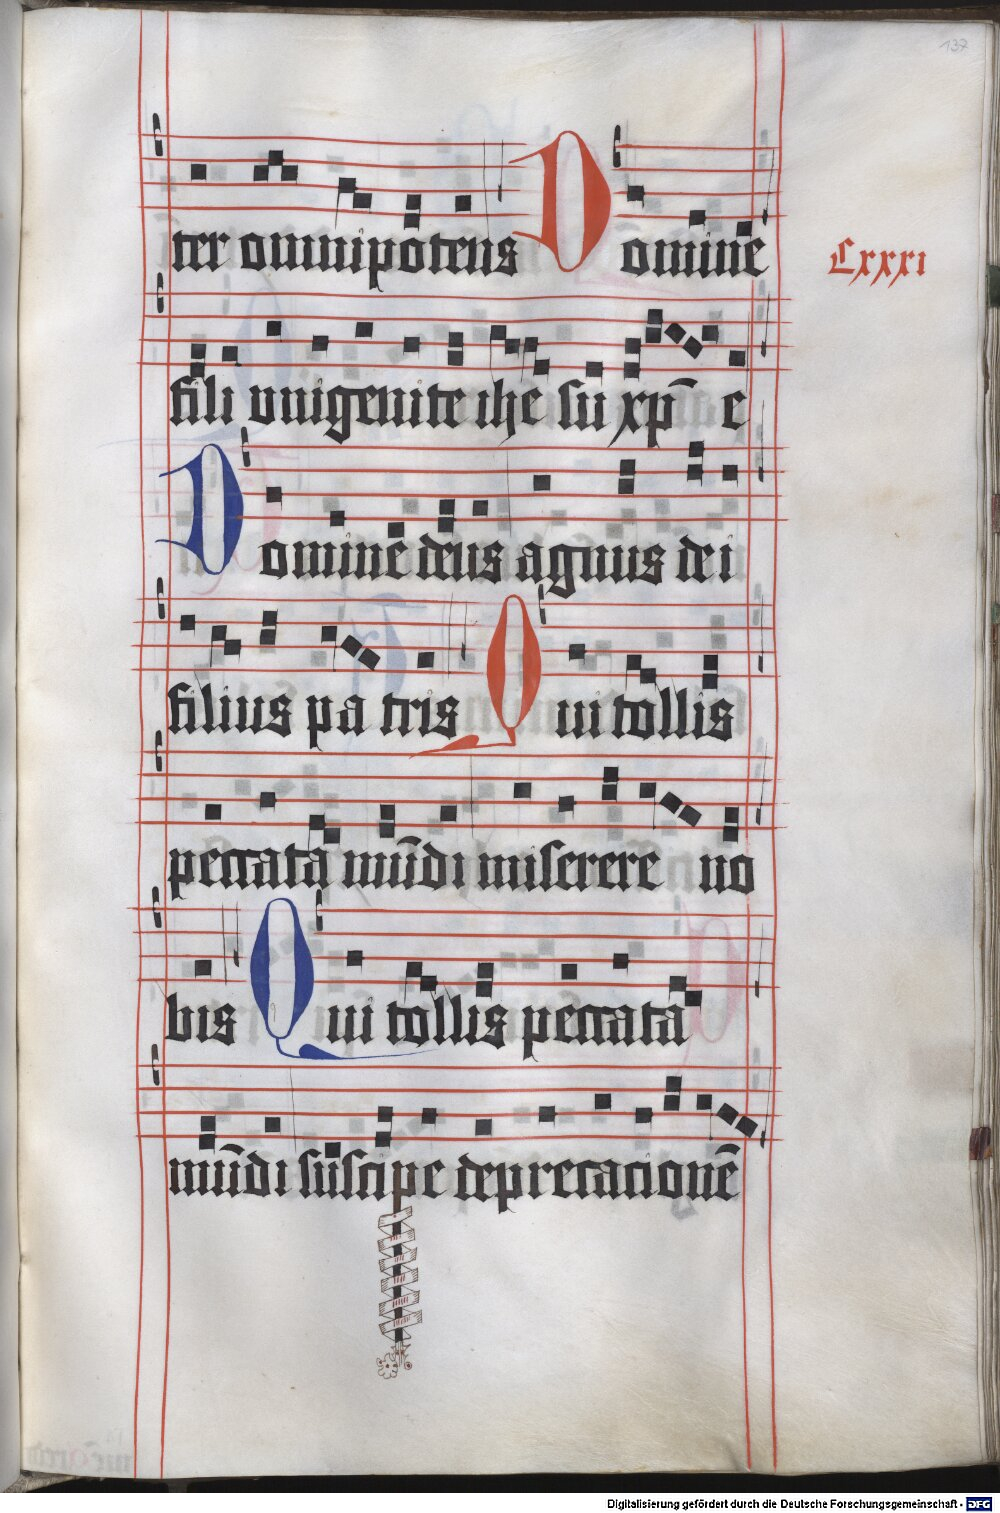 137
ter omnipotens Domine
Lxxxi
fili unigenite ihe su xp̄e
Domine deus agnus dei
filius patris Qui tollis
peccata mūdi miserere no
bis Qui tollis peccata
mūdi suscipe deprecacionē
Digitalisierung gefördert durch die Deutsche Forschungsgemeinschaft - DFG